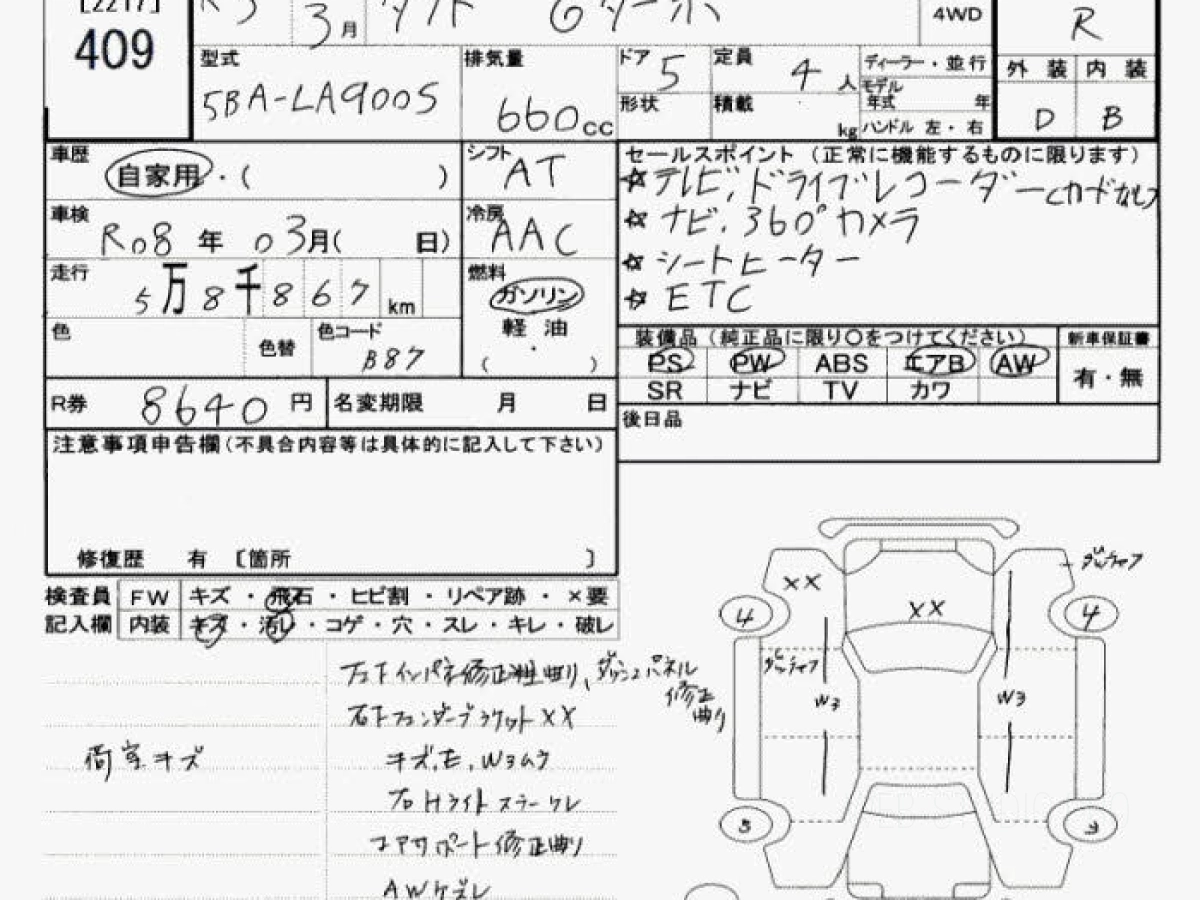 [2217]
409
R3 3月 タント Gターボ
4WD
R
型式 5BA-LA900S
排気量 660cc
ドア 5
定員 4人
ディーラー・並行
モデル年式 年
ハンドル 左・右
形状
積載 kg
外装 内装
D B
車歴 自家用・( )
シフト AT
車検 R08年 03月( 日)
冷房 AAC
走行 5万8千867km
燃料 ガソリン
軽油
( ・ )
色
色替
色コード B87
R券 8640円
名変期限 月 日
セールスポイント(正常に機能するものに限ります)
☆テレビ、ドライブレコーダー(カードなし)
☆ナビ、360°カメラ
☆シートヒーター
☆ETC
装備品(純正品に限り○をつけてください)
新車保証書
PS PW ABS エアB AW
有・無
SR ナビ TV カワ
後日品
注意事項申告欄(不具合内容等は具体的に記入して下さい)
修復歴 有 〔箇所 〕
検査員 FW キズ・飛石・ヒビ割・リペア跡・×要
記入欄 内装 キズ・汚れ・コゲ・穴・スレ・キレ・破レ
修正曲り、ダッシュパネル
修正
曲り
XX
荷室キズ
キズ、E、W3ムラ
コアサポート修正曲り
AWケズレ
XX
XX
4
4
W3
W3
3
3